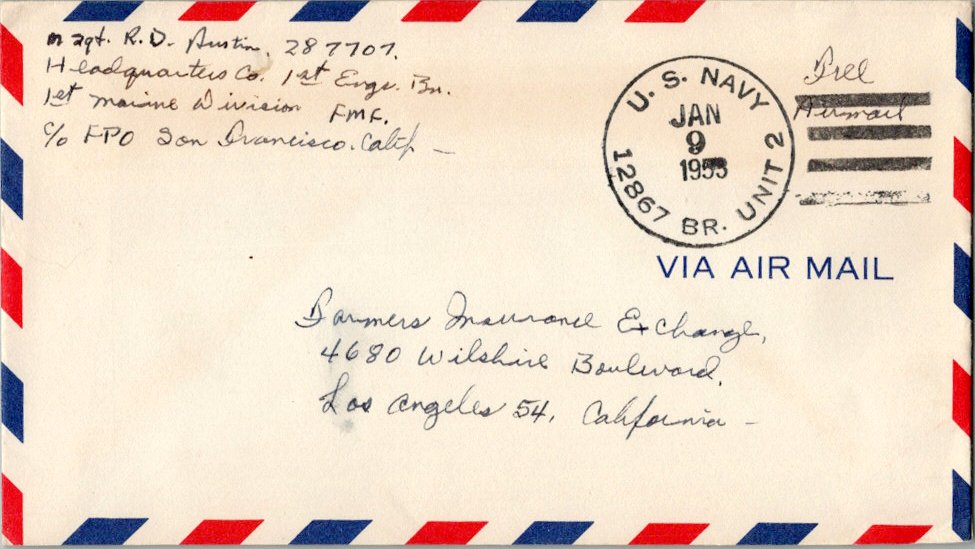 M Sgt. R. D. Austin, 287707.
Headquarters Co. 1st Engr. Bn.
1st Marine Division FMF.
c/o FPO San Francisco. Calif —
U. S. NAVY
JAN
9
1953
12867 BR. UNIT 2
Free
Airmail
VIA AIR MAIL
Farmers Insurance Exchange,
4680 Wilshire Boulevard,
Los Angeles 54, California —